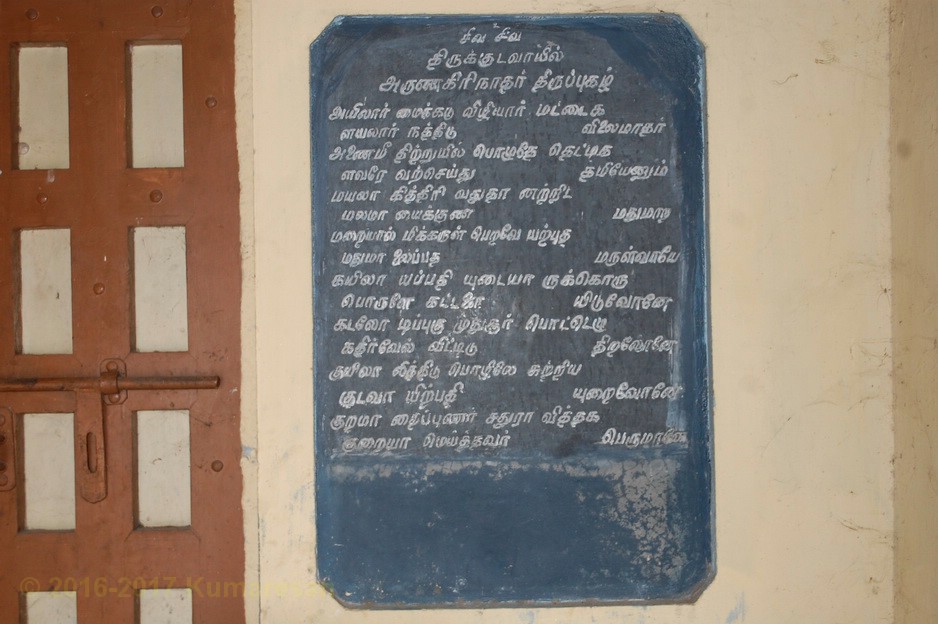 சிவ சிவ
திருக்குடவாயில்
அருணகிரிநாதர் திருப்புகழ்
அயிலார் மைக்கடு விழியார் மட்டைக
ளயலார் நத்திடு விலைமாதர்
அணைமீ திற்றுயில் பொழுதே தெட்டிக
ளவரே வற்செய்து தமியேனும்
மயலா கித்திரி வதுதா னற்றிட
மலமா யைக்குண மதுமாற
மறையால் மிக்கருள் பெறவே யற்புத
மதுமா லைப்பத மருள்வாயே
கயிலா யப்பதி யுடையா ருக்கொரு
பொருளே கட்டளை யிடுவோனே
கடலோ டிப்புகு முதுசூர் பொட்டெழ
கதிர்வேல் விட்டிடு திறலோனே
குயிலா லித்திடு பொழிலே சுற்றிய
குடவா யிற்பதி யுறைவோனே
குறமா தைப்புணர் சதுரா வித்தக
குறையா மெய்த்தவர் பெருமானே
© 2016-2017